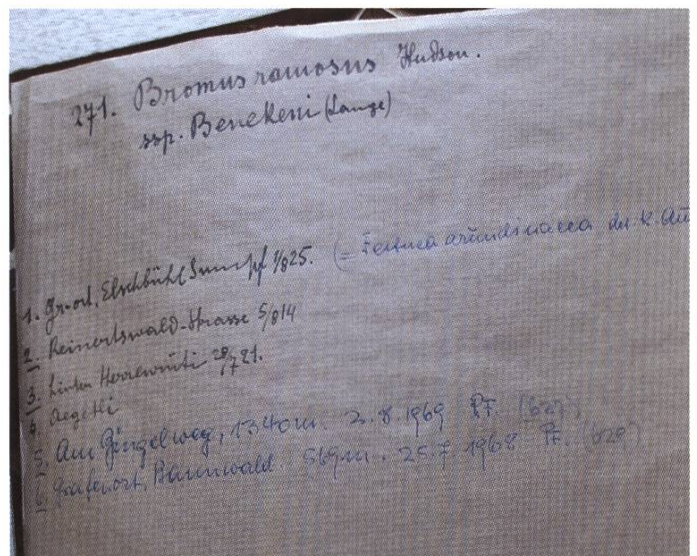 271. Bromus ramosus Hudson.
ssp. Benekeni (Lange)
1. Gr-ort, Elschbühl Sumpf 1/8 25. (= Festuca arundinacea det. K. Au
2. Reinertswald-Strasse 5/8 14
3. hinter Herrenrüti 28/7 21.
4. Aegetli
5. Am Gingelweg, 1340 m. 2.8.1969 Pf. (627)
6. Grafenort, Bannwald. 569 m. 25.7.1968 Pf. (620)